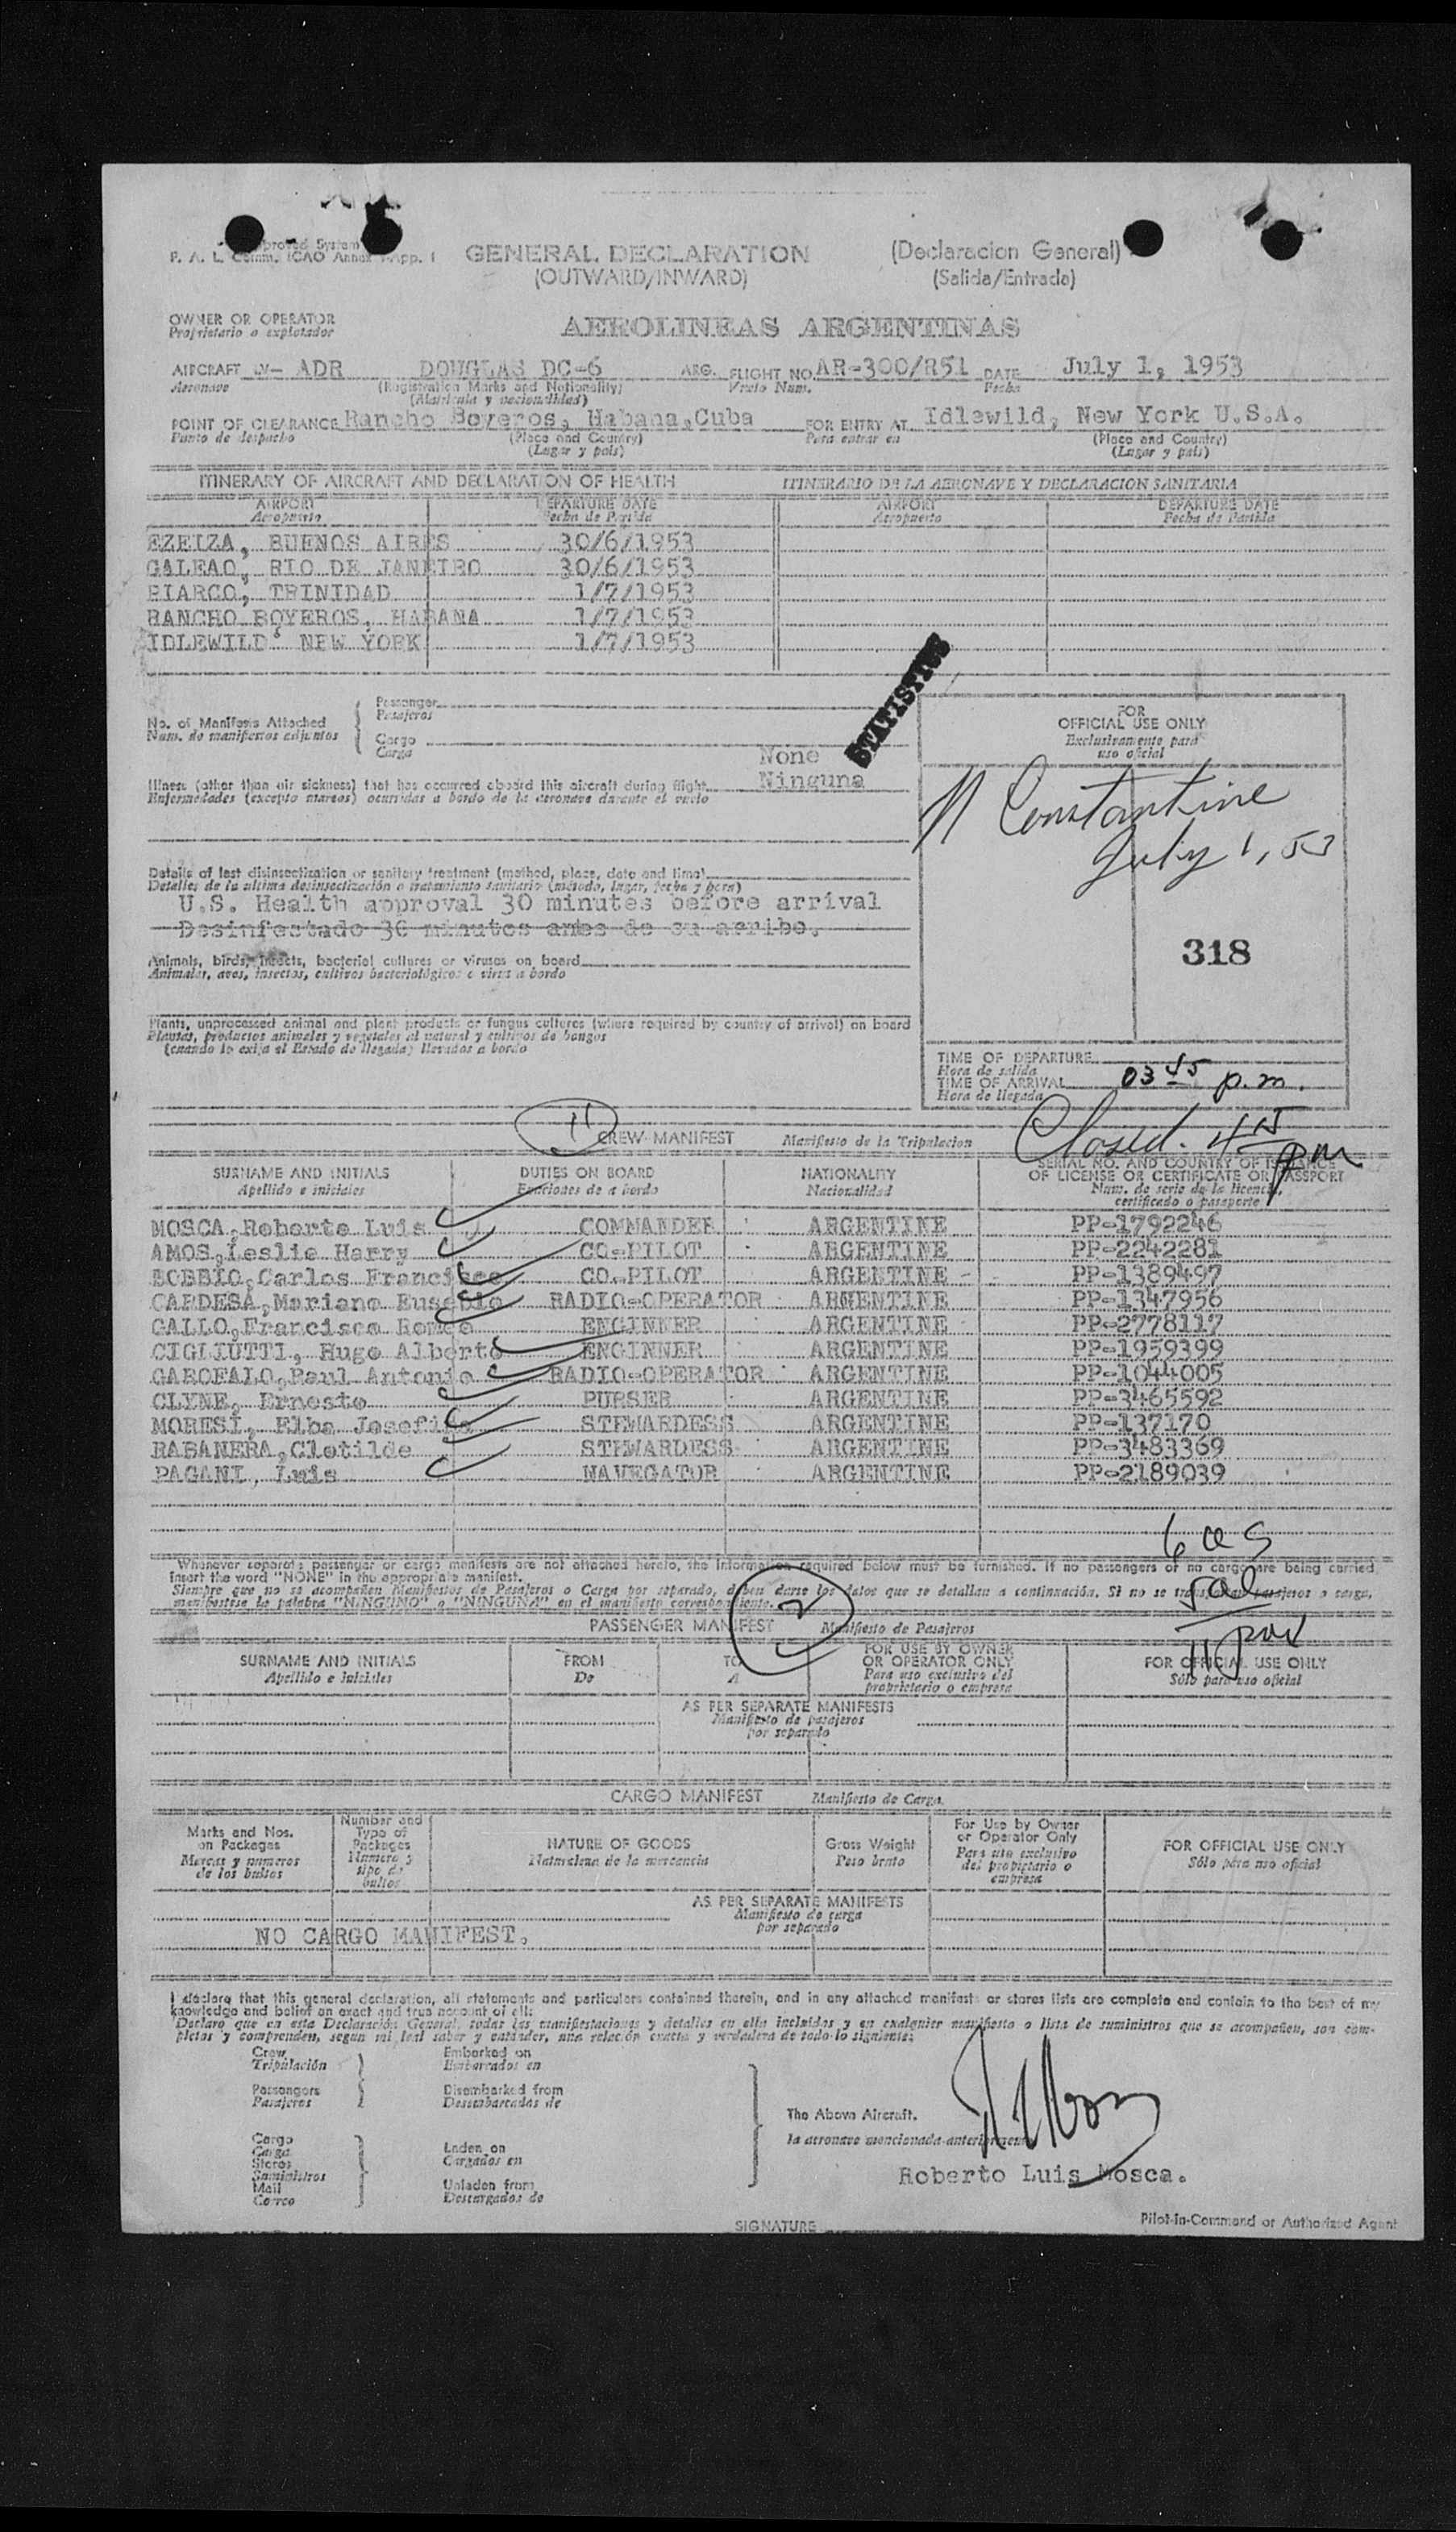 GENERAL DECLARATION (Declaracion General)
F. A. L. Comm. ICAO Annex App. 1
(OUTWARD/INWARD) (Salida/Entrada)
OWNER OR OPERATOR
Proprietario o explotador
AEROLINEAS ARGENTINAS
AIRCRAFT LV- ADR DOUGLAS DC-6 ARG. FLIGHT NO. AR-300/R51 DATE July 1, 1953
Aeronave (Registration Marks and Nationality) Vuelo Num. Fecha
(Matricula y nacionalidad)
POINT OF CLEARANCE Rancho Boyeros, Habana,Cuba FOR ENTRY AT Idlewild, New York U.S.A.
Punto de despacho (Place and Country) Para entrar en (Place and Country)
(Lugar y pais) (Lugar y pais)
ITINERARY OF AIRCRAFT AND DECLARATION OF HEALTH ITINERARIO DE LA AERONAVE Y DECLARACION SANITARIA
AIRPORT DEPARTURE DATE AIRPORT DEPARTURE DATE
Aeropuerto Fecha de Partida Aeropuerto Fecha de Partida
EZEIZA, BUENOS AIRES 30/6/1953
GALEAO, RIO DE JANEIRO 30/6/1953
PIARCO, TRINIDAD 1/7/1953
RANCHO BOYEROS, HABANA 1/7/1953
IDLEWILD NEW YORK 1/7/1953
STATISTICS
No. of Manifests Attached
Num. de manifiestos adjuntos
Passenger
Pasajeros
Cargo
Carga
None
Illness (other than air sickness) that has occurred aboard this aircraft during flight Ninguna
Enfermedades (excepto mareos) ocurridas a bordo de la aeronave durante el vuelo
Details of last disinsectization or sanitary treatment (method, place, date and time)
Detalles de la ultima desinsectización o tratamiento sanitario (método, lugar, fecha y hora)
U.S. Health approval 30 minutes before arrival
Desinfestado 30 minutos antes de su arribo.
Animals, birds, insects, bacterial cultures or viruses on board
Animales, aves, insectos, cultivos bacteriológicos o virus a bordo
Plants, unprocessed animal and plant products or fungus cultures (where required by country of arrival) on board
Plantas, productos animales y vegetales al natural y cultivos de hongos
(cuando lo exija el Estado de llegada) llevados a bordo
FOR
OFFICIAL USE ONLY
Exclusivamente para
uso oficial
N Constantine
July 1, 53
318
TIME OF DEPARTURE
Hora de salida
TIME OF ARRIVAL 03 45 p.m.
Hora de llegada
Closed. 4 15 pm
11
CREW MANIFEST Manifiesto de la Tripulacion
SURNAME AND INITIALS DUTIES ON BOARD NATIONALITY SERIAL NO. AND COUNTRY OF ISSUANCE
Apellido e iniciales Funciones de a bordo Nacionalidad OF LICENSE OR CERTIFICATE OR PASSPORT
Num. de serie de la licencia,
certificado o pasaporte
MOSCA,Roberto Luis COMMANDER ARGENTINE PP-1792246
AMOS,Leslie Harry CO-PILOT ARGENTINE PP-2242281
BOBBIO,Carlos Francisco CO-PILOT ARGENTINE PP-1389497
CARDESA,Mariano Eusebio RADIO-OPERATOR ARGENTINE PP-1347956
GALLO,Francisco Romeo ENGINNER ARGENTINE PP-2778117
CIGLIUTTI, Hugo Alberto ENGINNER ARGENTINE PP-1959399
GAROFALO,Raul Antonio RADIO-OPERATOR ARGENTINE PP-1044005
CLYNE, Ernesto PURSER ARGENTINE PP-3465592
MORESI, Elba Josefina STEWARDESS ARGENTINE PP-137170
RABANERA,Clotilde STEWARDESS ARGENTINE PP-3483369
PAGANI, Luis NAVEGATOR ARGENTINE PP-2189039
Whenever separate passenger or cargo manifests are not attached hereto, the information required below must be furnished. If no passengers or no cargo are being carried,
insert the word "NONE" in the appropriate manifest.
Siempre que no se acompañen Manifiestos de Pasajeros o Carga por separado, deben darse los datos que se detallan a continuación. Si no se pasajeros o carga,
manifiestese la palabra "NINGUNO" o "NINGUNA" en el manifiesto correspondiente.
2
PASSENGER MANIFEST Manifiesto de Pasajeros
SURNAME AND INITIALS FROM TO FOR USE BY OWNER OR OPERATOR ONLY FOR OFFICIAL USE ONLY
Apellido e iniciales De A Para uso exclusivo del propietario o empresa Sólo para uso oficial
AS PER SEPARATE MANIFESTS
Manifiesto de pasajeros
por separado
CARGO MANIFEST Manifiesto de Carga
Marks and Nos. on Packages Number and Type of Packages NATURE OF GOODS Gross Weight For Use by Owner or Operator Only FOR OFFICIAL USE ONLY
Marcas y numeros de los bultos Numero y tipo de bultos Naturaleza de la mercancia Peso bruto Para uso exclusivo del propietario o empresa Sólo para uso oficial
AS PER SEPARATE MANIFESTS
Manifiesto de carga
por separado
NO CARGO MANIFEST.
I declare that this general declaration, all statements and particulars contained therein, and in any attached manifests or stores lists are complete and contain to the best of my
knowledge and belief an exact and true account of all:
Declaro que en esta Declaración General, todas las manifestaciones y detalles en ella incluídos y en cualquier manifiesto o lista de suministros que se acompañen, son com-
pletos y comprenden, segun mi leal saber y entender, una relación exacta y verdadera de todo lo siguiente:
Crew Embarked on
Tripulación Embarcados en
Passengers Disembarked from
Pasajeros Desembarcados de
Cargo
Carga Laden on
Stores Cargados en
Suministros
Mail Unladen from
Correo Descargados de
The Above Aircraft.
la aeronave mencionada anteriormente
Roberto Luis Mosca.
SIGNATURE Pilot-in-Command or Authorized Agent